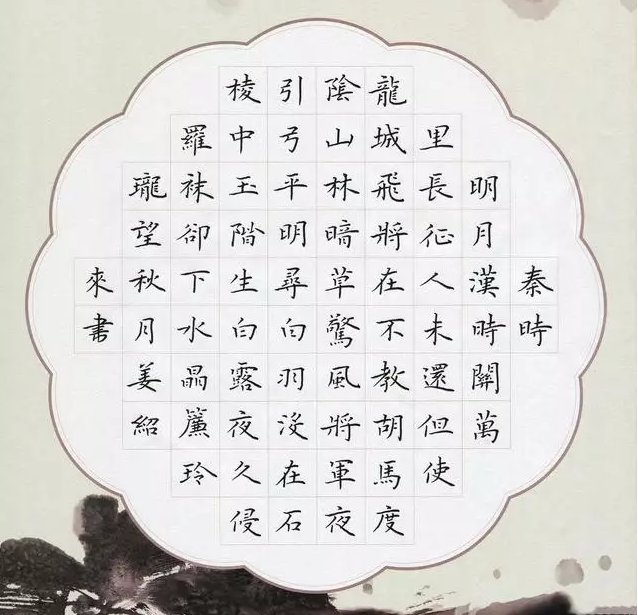 秦時
明月漢時關萬
里長征人未還但使
龍城飛將在不教胡馬度
陰山林暗草驚風將軍夜
引弓平明尋白羽沒在石
棱中玉階生白露夜久侵
羅袜卻下水晶簾玲
瓏望秋月姜紹
來書